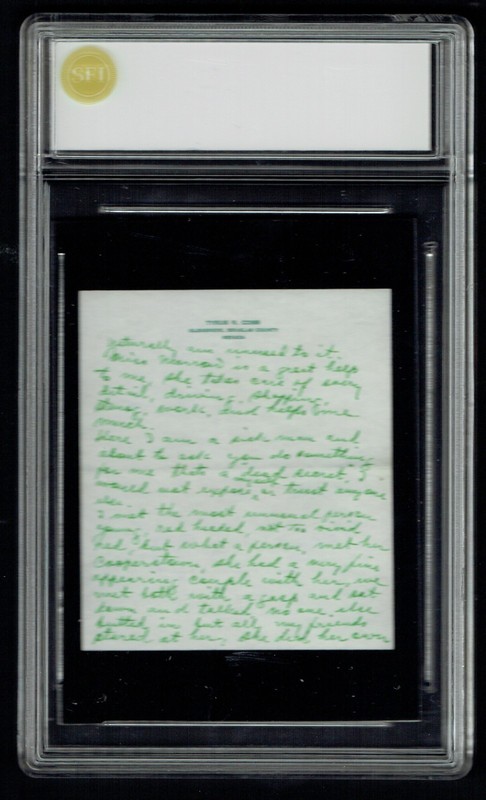 SFI
TYRUS R. COBB
GLENBROOK, DOUGLAS COUNTY
NEVADA
Naturally am unused to it.
Miss is a great help
to me, she takes care of every
detail, driving, shopping,
steno, work, and helps me
much.
Here I am a sick man and
about to ask you do something
for me that a "dead secret" I
would not expose, or trust anyone
else.
I met the most unusual person
young, red headed, not too vivid
red, but what a person, met her
Cooperstown, she had a very fine
appearing couple with her, we
met both with a gasp and sat
down and talked no one else
butted in but all my friends
stared at her, she did her own